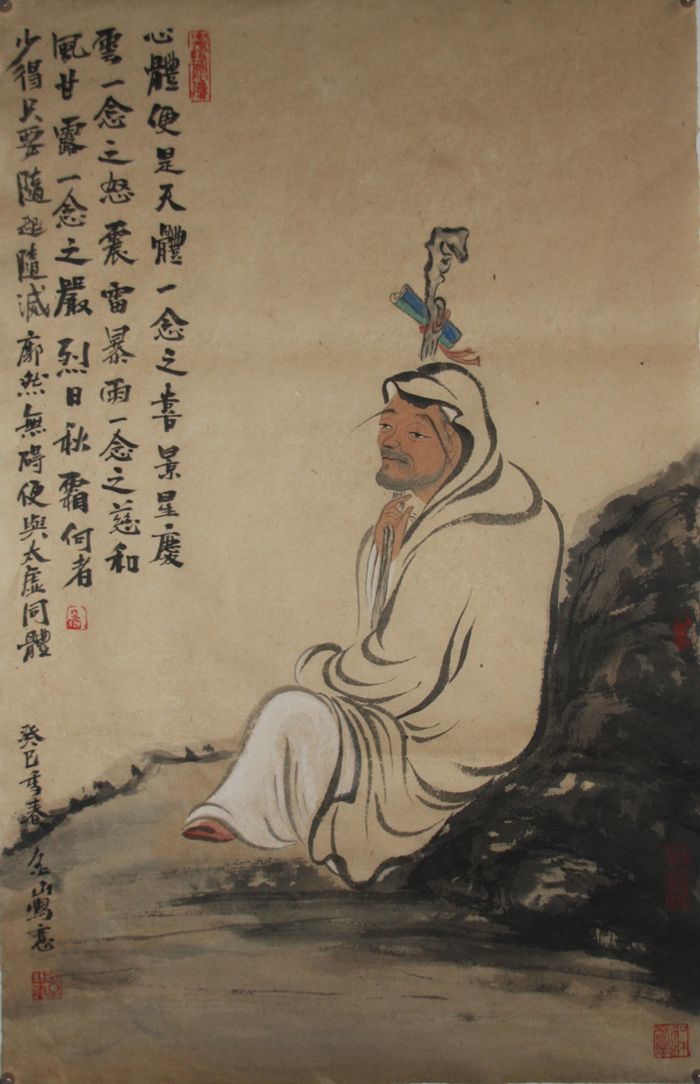 心體便是天體一念之喜景星慶
雲一念之怒震雷暴雨一念之慈和
風甘露一念之嚴烈日秋霜何者
少得只要隨起隨滅廓然無碍便與太虛同體
癸巳季春 山寫意